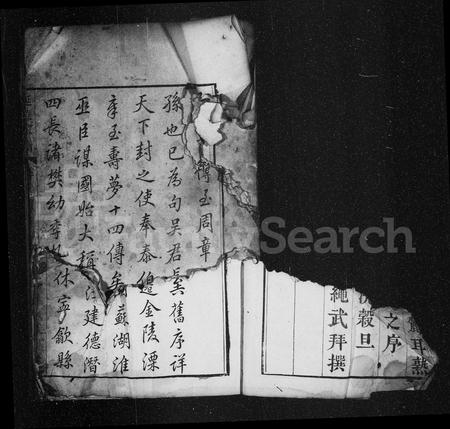 燕耳
之序
穀旦
繩武拜撰
傳至周章
孫也已為句吳君矣舊序詳
天下封之使奉泰進金陵溧
章至壽夢十四傳矣蘇湖淮
巫臣謀國始大稱 建德潛
四長諸樊幼季札休寧歙縣
FamilySearch